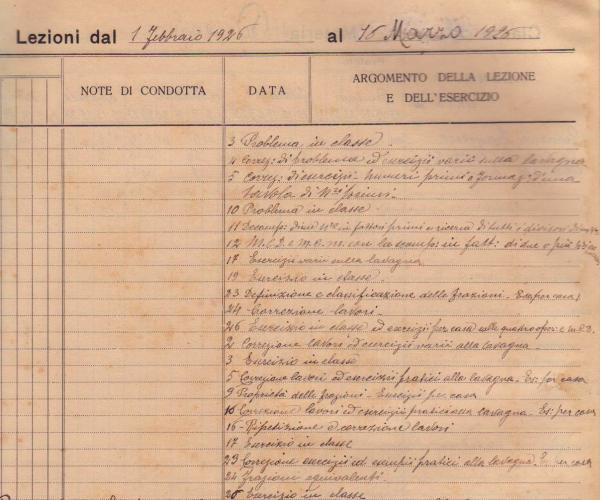 Lezioni dal 1 Febbraio 1926 al 16 Marzo 1926
NOTE DI CONDOTTA
DATA
ARGOMENTO DELLA LEZIONE
E DELL'ESERCIZIO
3 Problema in classe.
4 Correz: di problema ed esercizii varii sulla lavagna
5 Correz: di esercizi. Numeri primi e formaz: d'una
tavola di N.ri primi.
10 Problema in classe
11 Decomp: d'un N.ro in fattori primi e ricerca di tutti i divisori
12 M.C.D. e m.c.m. con la scomp: in fatt: di due o più
17 Esercizii varii sulla lavagna
19 Esercizio in classe
23 Definizione e classificazione delle frazioni. Es. per casa
24 Correzione lavori.
26 Esercizio in classe ed esercizii per casa sulle quattro oper: e M.C.D.
2 Correzione lavori ed esercizii varii alla lavagna.
3 Esercizio in classe
5 Correzione lavori ed esercizii pratici alla lavagna. Es: per casa
9 Proprietà delle frazioni. Esercizii per casa
10 Correzione lavori ed esercizii pratici alla lavagna. Es: per casa
16 Ripetizione e correzione lavori
17 Esercizio in classe
23 Correzione esercizii ed esempii pratici alla lavagna. casa
24 Frazioni equivalenti.
26 Esercizio in classe